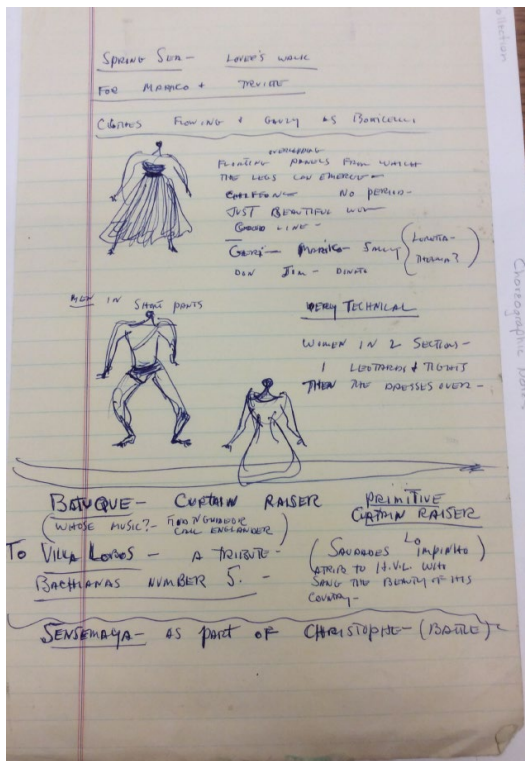 SPRING SEA — LOVER'S WALK
FOR MARIKO +
CLOTHES FLOWING + GAUZY AS BOTICELLI
OVERLAPPING
FLOATING PANELS FROM WHICH
THE LEGS CAN EMERGE —
CHIFFON — NO PERIOD —
JUST BEAUTIFUL
GOOD LINE —
GERI — MARIKO — SALLY (LORETTA — THELMA?)
DON JIM — DINATO
MEN IN SHORT PANTS
VERY TECHNICAL
WOMEN IN 2 SECTIONS —
1 LEOTARDS + TIGHTS
THEN THE DRESSES OVER —
BATUQUE — CURTAIN RAISER
(WHOSE MUSIC? — CALL ENGLANDER)
PRIMITIVE
CURTAIN RAISER
TO VILLA LOBOS — A TRIBUTE —
BACHIANAS NUMBER 5. —
(SAUDADES
A TRIB TO H. VIL WHO
SANG THE BEAUTY OF HIS
COUNTRY —
SENSEMAYA — AS PART OF CHRISTOPHE — (BATTLE)
Collection
Choreographic